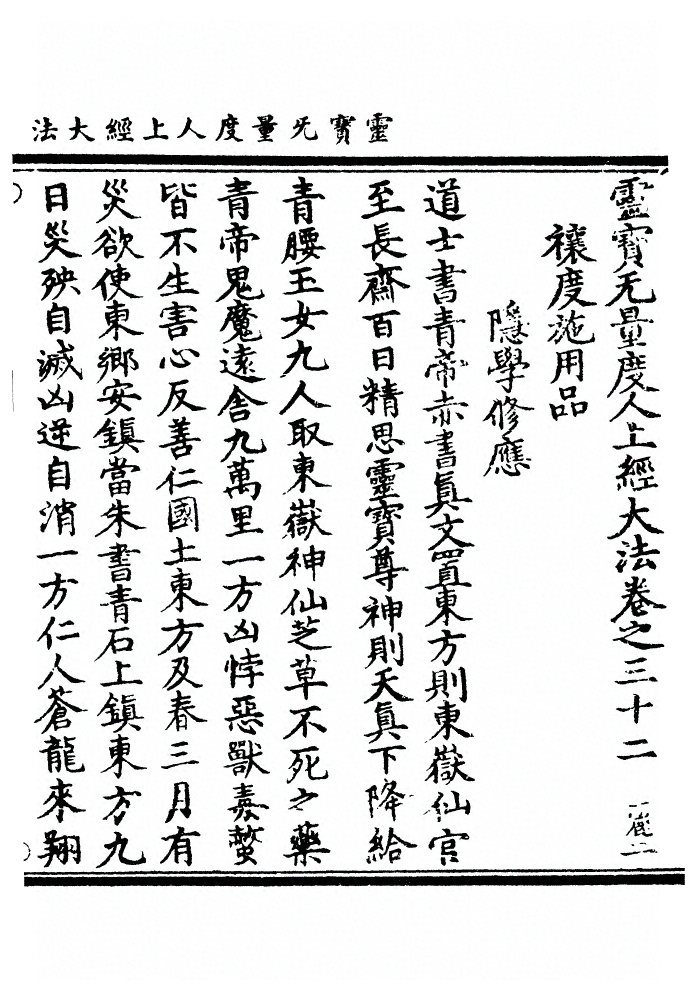 靈寳旡量度人上經大法
靈寳无量度人上經大法卷之三十二
禳度施用品
隱學修應
道士書青帝赤書眞文置東方則東嶽仙官
至長齋百日精思靈寳尊神則天眞下降給
青腰玉女九人取東嶽神仙芝草不死之藥
青帝鬼魔遠舎九萬里一方凶悖惡獸毒螫
皆不生害心反善仁國土東方及春三月有
災欲使東鄉安鎮當朱書青石上鎮東方九
日災殃自滅凶逆自消一方仁人蒼龍來翔